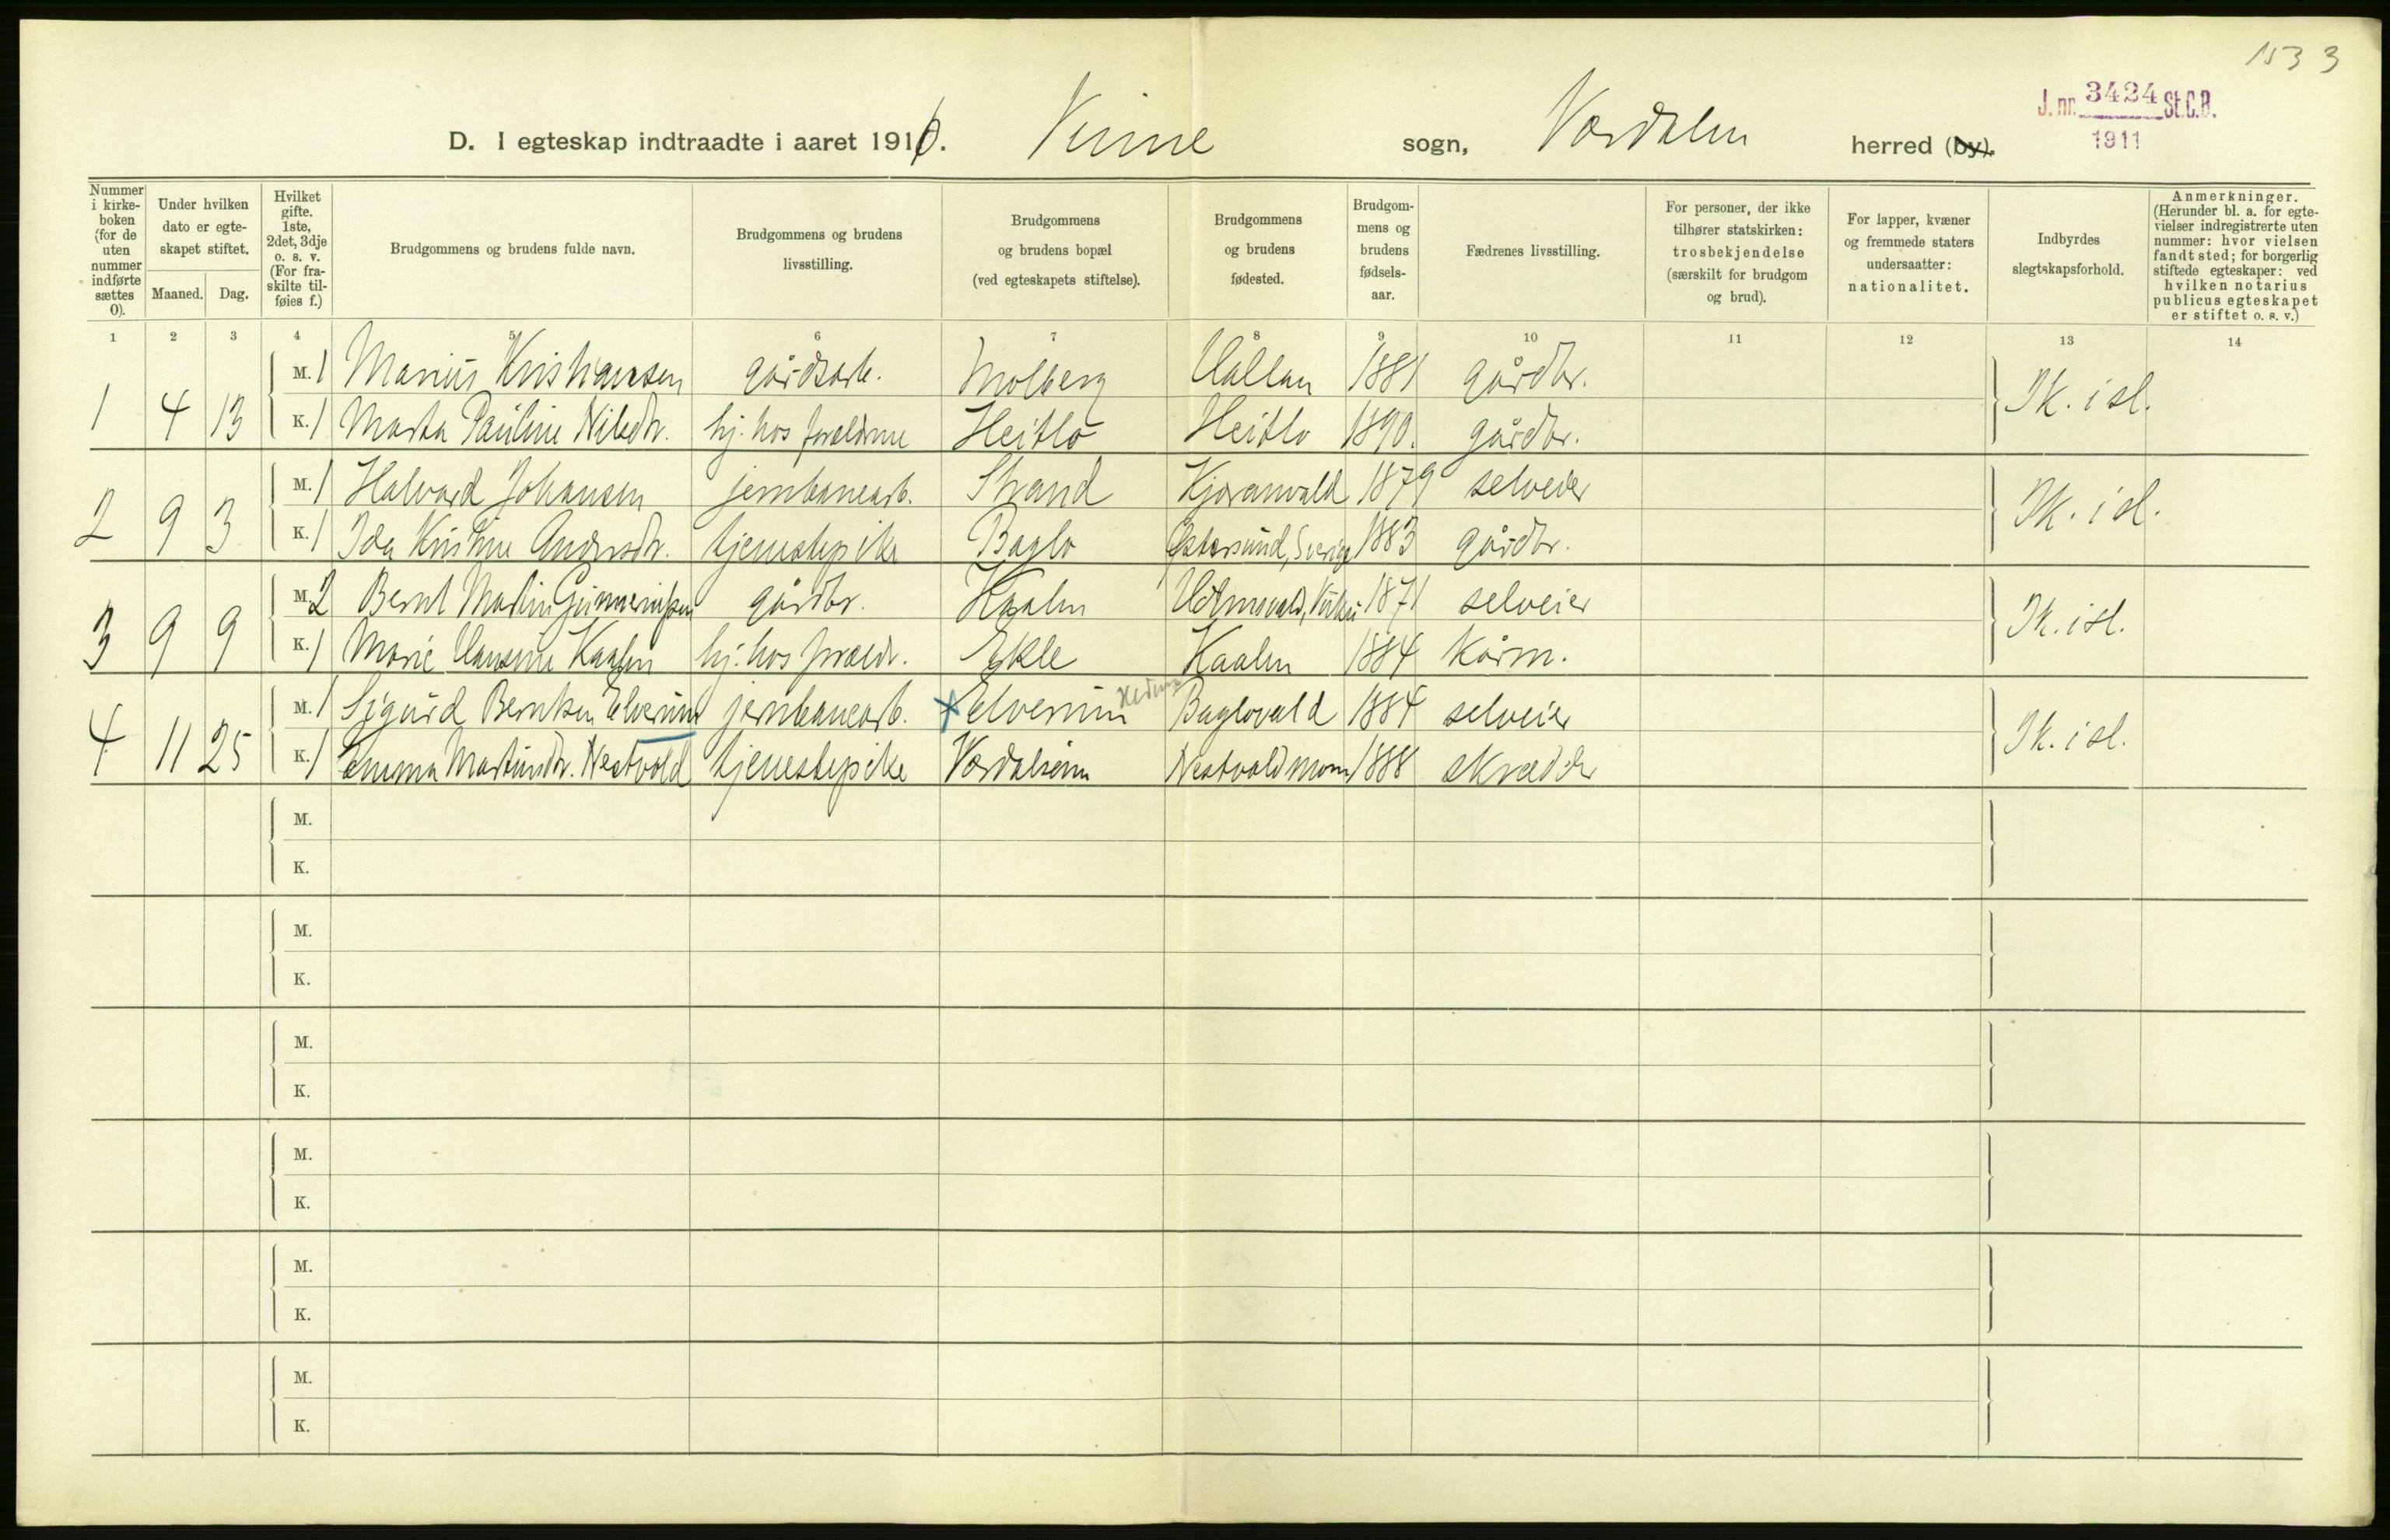 153 3
J. nr. 3424 St.C.B.
1911
D. I egteskap indtraadte i aaret 1910. Vinne sogn, Værdalen herred (by).
Nummer i kirkeboken (for de uten nummer indførte sættes 0).
Under hvilken dato er egteskapet stiftet.
Maaned. Dag.
Hvilket gifte. 1ste, 2det, 3dje o. s. v. (For fraskilte tilføies f.)
Brudgommens og brudens fulde navn.
Brudgommens og brudens livsstilling.
Brudgommens og brudens bopæl (ved egteskapets stiftelse).
Brudgommens og brudens fødested.
Brudgommens og brudens fødselsaar.
Fædrenes livsstilling.
For personer, der ikke tilhører statskirken: trosbekjendelse (særskilt for brudgom og brud).
For lapper, kvæner og fremmede staters undersaatter: nationalitet.
Indbyrdes slegtskapsforhold.
Anmerkninger. (Herunder bl. a. for egtevielser indregistrerte uten nummer: hvor vielsen fandt sted; for borgerlig stiftede egteskaper: ved hvilken notarius publicus egteskapet er stiftet o. s. v.)
1 2 3 4 5 6 7 8 9 10 11 12 13 14
M. 1 Marius Kristiansen gårdsarb. Molberg Hallan 1881 gårdbr.
1 4 13 Ik. isl.
K. 1 Marta Pauline Nilsdtr. hj. hos forældrene Heitlo Heitlo 1890. gårdbr.
M. 1 Halvard Johansen jernbanearb. Strand Kjæranvald 1879 selveier
2 9 3 Ik. isl.
K. 1 Ida Kristine Andersdtr. tjenestepike Baglo Østersund, Sverige 1883 gårdbr.
M. 2 Bernt Martin Gunneriussen gårdbr. Kaalen 1871 selveier
3 9 9 Ik. isl.
K. 1 Marie Hansine Kaalen hj. hos forældr. Ekle Kaalen 1884 kårm.
M. 1 Sigurd Berntsen Elverum jernbanearb. × Elverum Hedem. Baglovald 1884 selveier
4 11 25 Ik. isl.
K. 1 Emma Martinsdtr. Nestvold tjenestepike Værdalsøren Nestvoldmoen 1888 skrædder
M.
K.
M.
K.
M.
K.
M.
K.
M.
K.
M.
K.